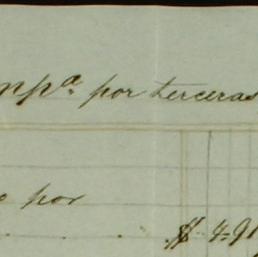 mpª por terceras
o por
$ 4.91